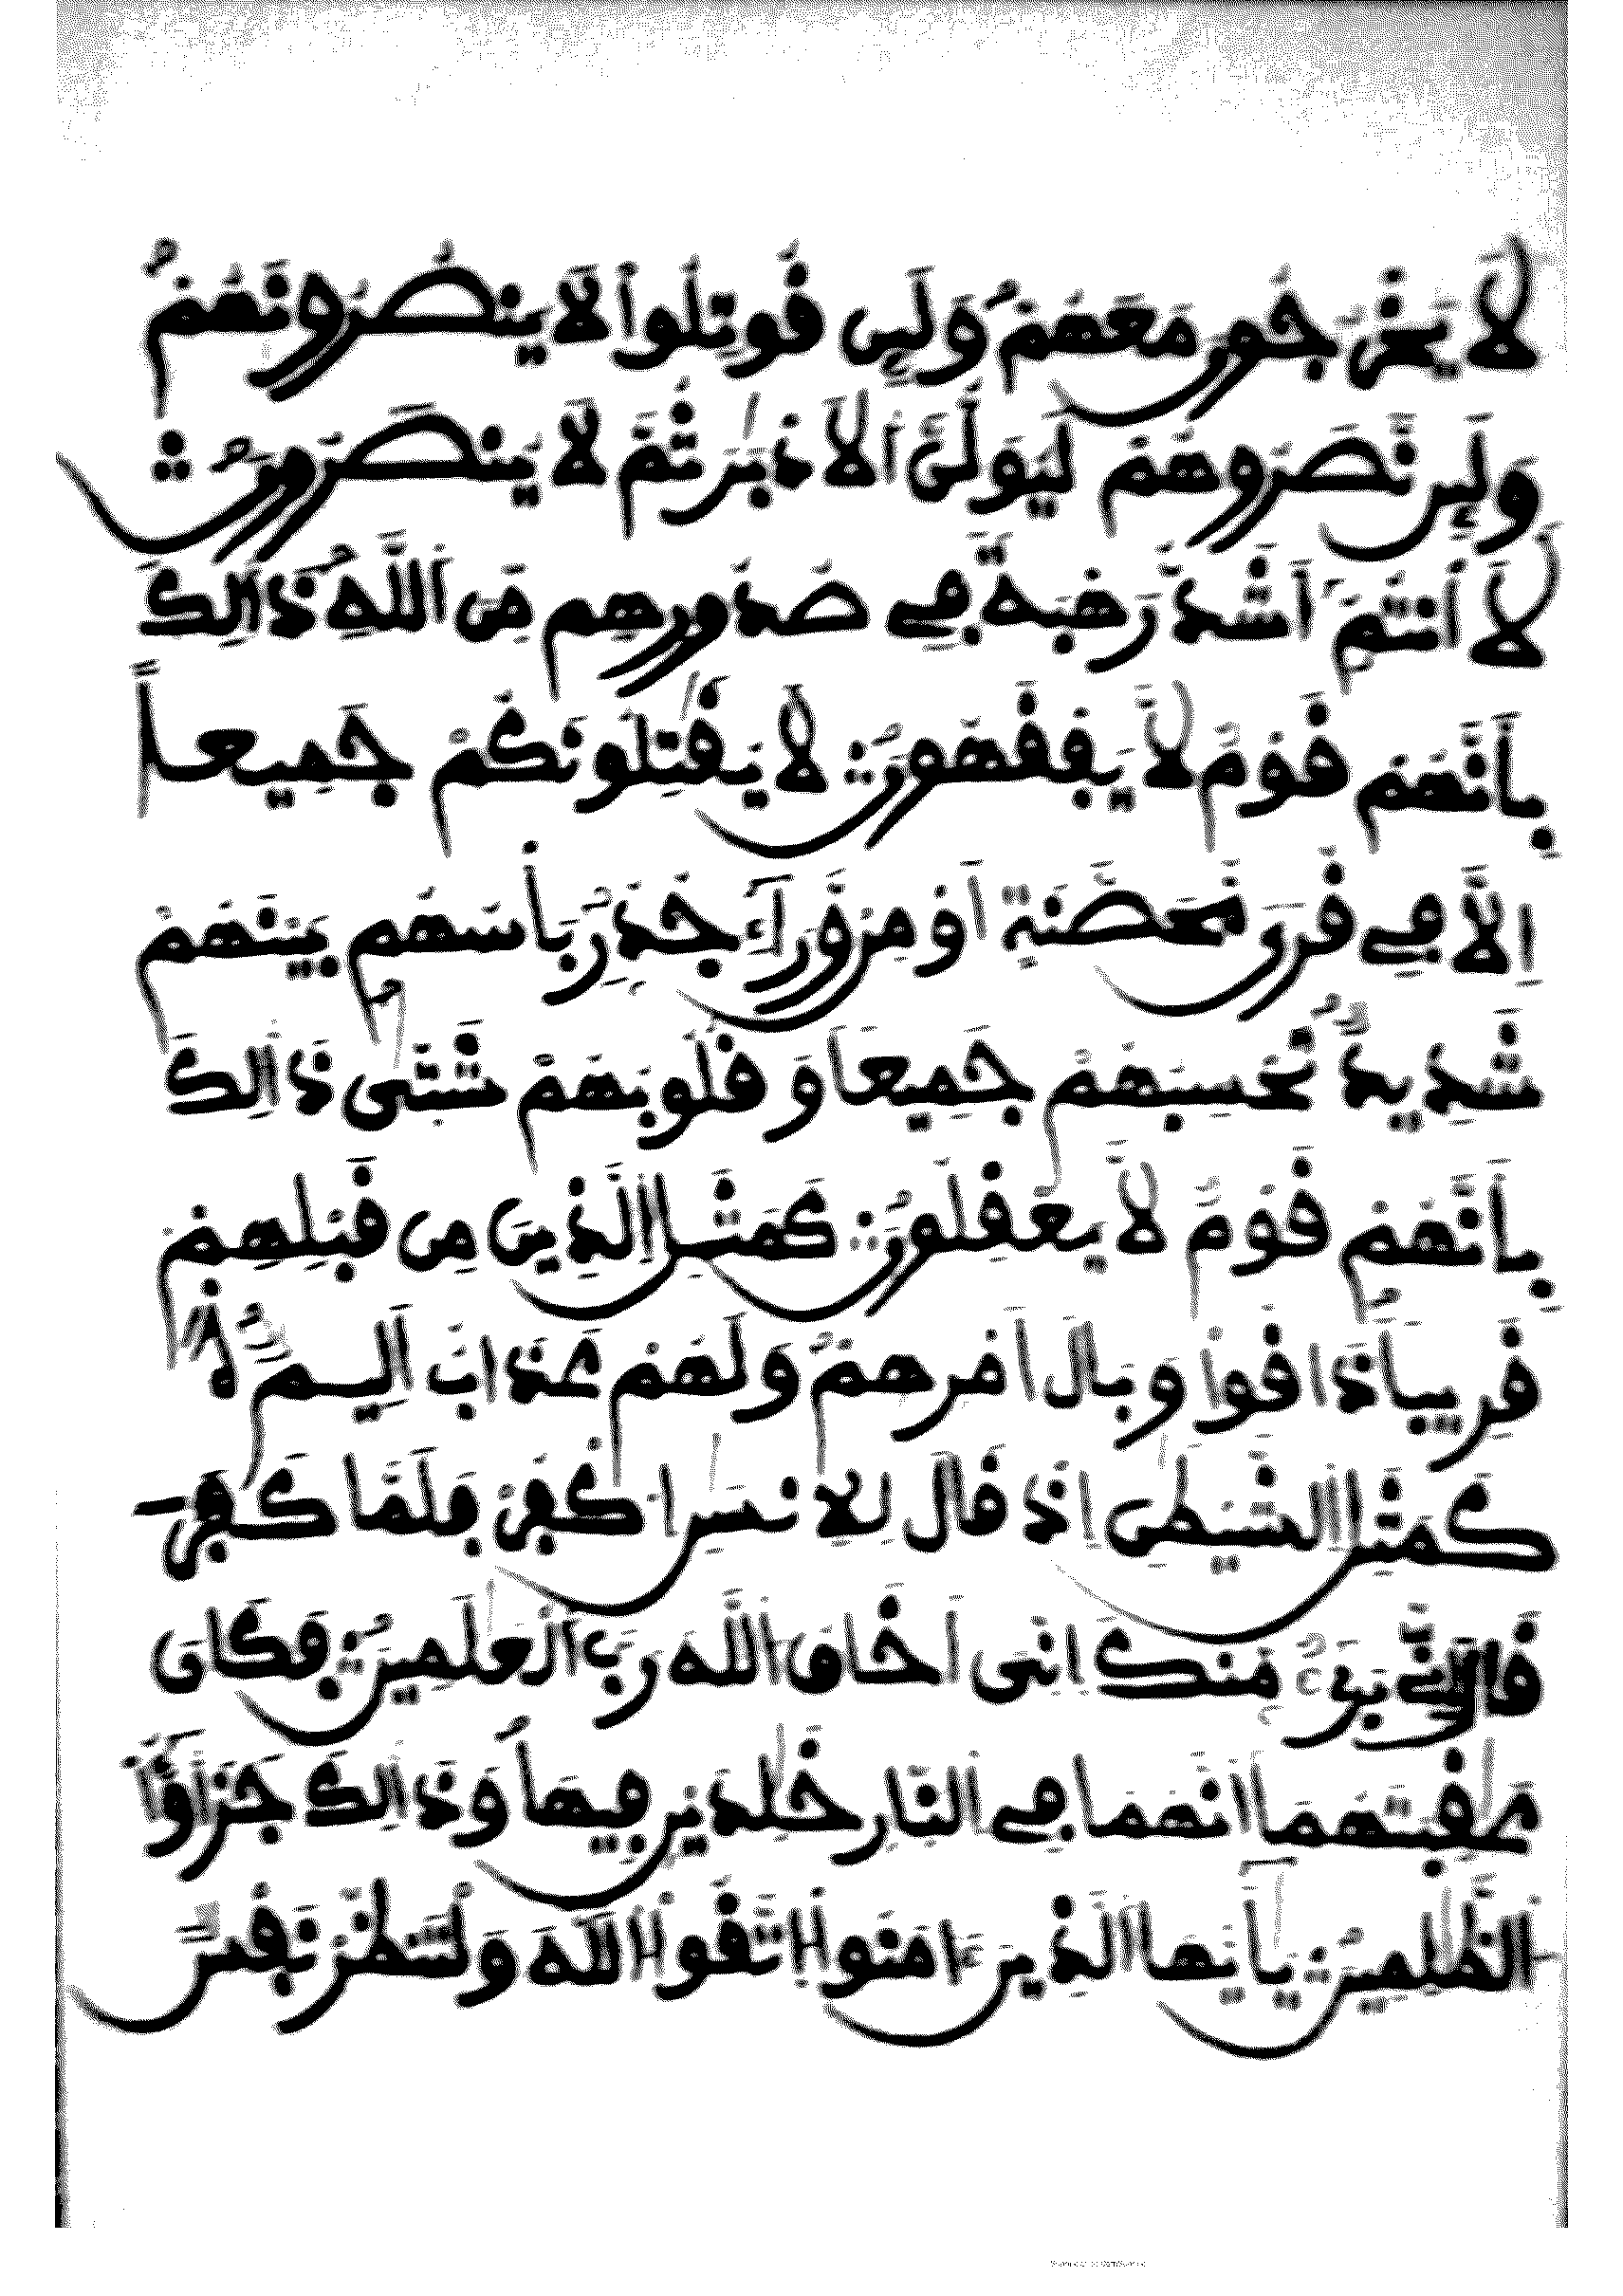 لَا يَخْرُجُونَ مَعَهُمْ وَلَئِن قُوتِلُواْ لَا يَنصُرُونَهُمْ
وَلَئِن نَّصَرُوهُمْ لَيُوَلُّنَّ اَلَادْبَٰرَ ثُمَّ لَا يُنصَرُونَ ۞
لَأَنتُمْ أَشَدُّ رَهْبَةً فِے صُدُورِهِم مِّنَ اَللَّهِ ذَالِكَ
بِأَنَّهُمْ قَوْمٌ لَّا يَفْقَهُونَ ۞ لَا يُقَٰتِلُونَكُمْ جَمِيعاً
اِلَّا فِے قُرىً مُّحَصَّنَةٍ اَوْ مِنْ وَّرَآءِ جُدُرٍ بَأْسُهُم بَيْنَهُمْ
شَدِيدٌ تَحْسِبُهُمْ جَمِيعاً وَقُلُوبُهُمْ شَتَّىٰ ذَالِكَ
بِأَنَّهُمْ قَوْمٌ لَّا يَعْقِلُونَ ۞ كَمَثَلِ اِلَّذِينَ مِن قَبْلِهِمْ
قَرِيباً ذَاقُوا وَبَالَ أَمْرِهِمْ وَلَهُمْ عَذَابٌ اَلِيمٌ ۞
كَمَثَلِ اِلشَّيْطَٰنِ إِذْ قَالَ لِلِانسَٰنِ اِ۟كْفُرْ فَلَمَّا كَفَرَ
قَالَ إِنِّے بَرِےٓءٌ مِّنكَ إِنِّى أَخَافُ اَللَّهَ رَبَّ اَلْعَٰلَمِينَ ۞ فَكَانَ
عَٰقِبَتَهُمَا أَنَّهُمَا فِے اِلنَّارِ خَٰلِدَيْنِ فِيهَا وَذَالِكَ جَزَٰٓؤُاْ
اَلظَّٰلِمِينَ ۞ يَٰأَيُّهَا اَلَّذِينَ ءَامَنُوا اُ۪تَّقُوا اُللَّهَ وَلْتَنظُرْ نَفْسٌ